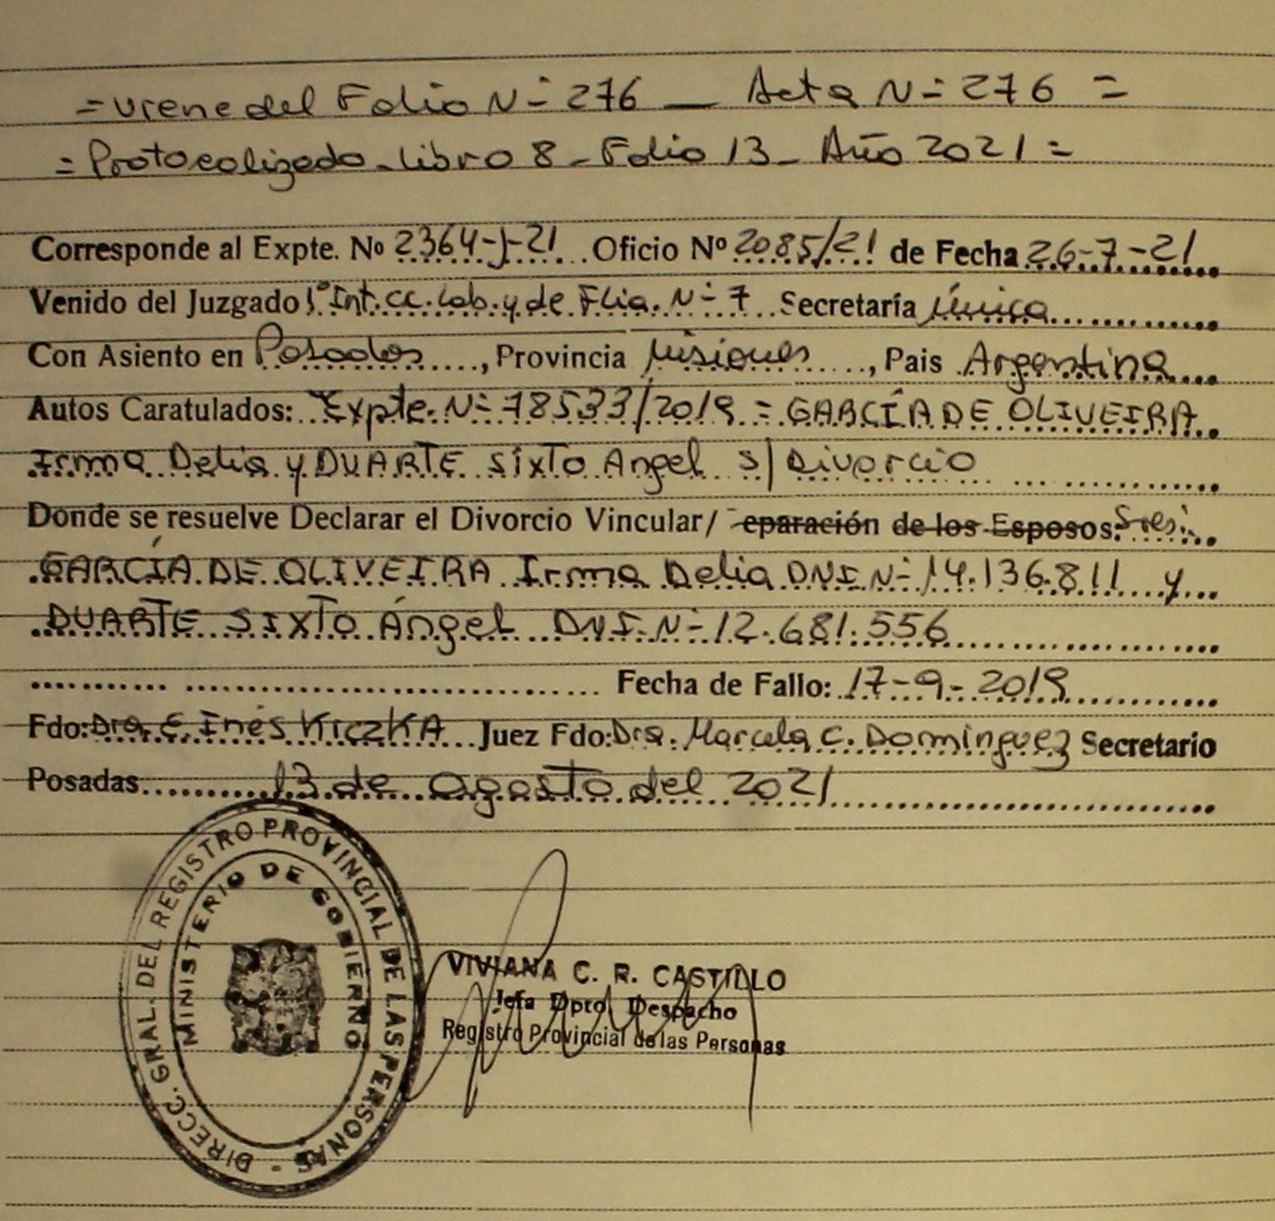 = viene del Folio N= 276 — Acta N= 276 =
= Protocolizado - Libro 8 - Folio 13 - Año 2021 =
Corresponde al Expte. Nº 2364-J-21 Oficio Nº 2085/21 de Fecha 26-7-21
Venido del Juzgado 1º Int.cc.Lab.y de Flia. N= 7 Secretaría Única
Con Asiento en Posadas, Provincia Misiones, Pais Argentina
Autos Caratulados: Expte. N= 78533/2019 = GARCÍA DE OLIVEIRA
Irma Delia y DUARTE SIXTO Angel s/ Divorcio
Donde se resuelve Declarar el Divorcio Vincular/ eparación de los Esposos: Sres:
GARCÍA DE OLIVEIRA Irma Delia DNI. N= 14.136.811 y
DUARTE SIXTO Ángel DNI. N= 12.681.556
Fecha de Fallo: 17-9-2019
Fdo: Dra. C. Inés KICZKA Juez Fdo: Dra. Marcela C. Dominguez Secretario
Posadas 13 de agosto del 2021
DIRECC. GRAL. DEL REGISTRO PROVINCIAL DE LAS PERSONAS -
MINISTERIO DE GOBIERNO
VIVIANA C. R. CASTILLO
Jefa Dpto Despacho
Registro Provincial de las Personas